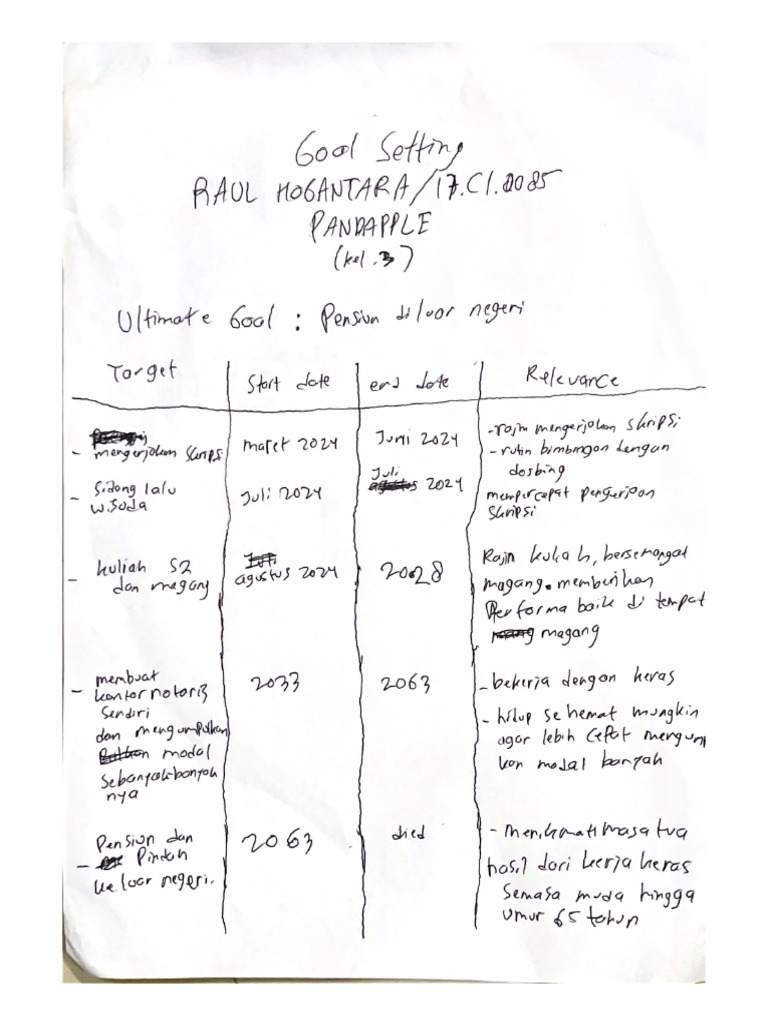 Goal Setting
RAUL HOGANTARA/17.C1.0085
PANDAPPLE
(kel.3)
Ultimate Goal : Pensiun diluar negeri
Target
Start date
end date
Relevance
- mengerjakan skripsi
maret 2024
Juni 2024
- rajin mengerjakan skripsi
- rutin bimbingan dengan
dosbing
- Sidang lalu
wisuda
Juli 2024
Juli
2024
mempercepat pengerjaan
skripsi
- kuliah S2
dan magang
agustus 2024
2028
Rajin kuliah, bersemangat
magang. memberikan
Performa baik di tempat
magang
- membuat
kantor notaris
sendiri
dan mengumpulkan
modal
sebanyak-banyak
nya
2033
2063
- bekerja dengan keras
- hidup se hemat mungkin
agar lebih cepat mengum
kan modal banyak
Pensiun dan
- Pindah
ke luar negeri.
2063
died
- menikmati masa tua
hasil dari kerja keras
semasa muda hingga
umur 65 tahun